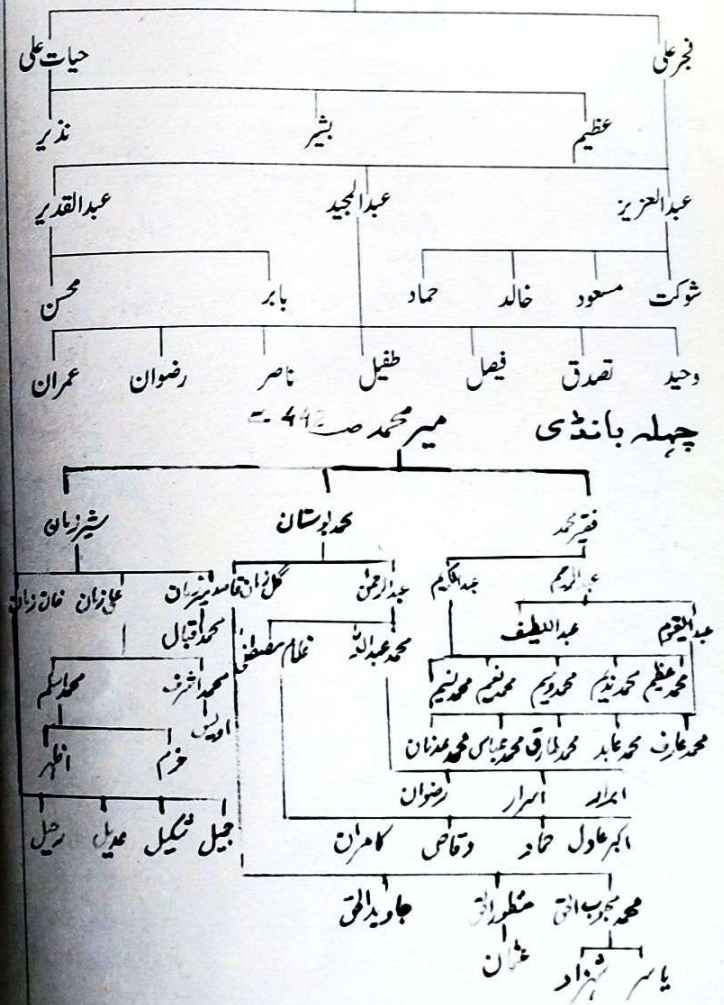 فجر علی حیات علی
عظیم بشیر نذیر
عبدالعزیز عبدالمجید عبدالقدیر
شوکت مسعود خالد حماد بابر محسن
وحید تصدق فیصل طفیل ناصر رضوان عمران
چہلہ بانڈی میر محمد صـ
فقیر محمد محمد بوستان شیر زمان
عبدالرحیم عبدالکریم عبدالرحمن گل زمان علی زمان خان زمان
عبدالقیوم عبداللطیف محمد عبداللہ غلام مصطفیٰ محمد اقبال
محمد عظیم محمد ندیم محمد وسیم محمد نعیم محمد نسیم محمد اشرف محمد اسلم
اویس
محمد عارف محمد عابد محمد طارق محمد عباس محمد عدنان خرم اظہر
ابرار اسرار رضوان
اکبر عادل حماد وقاص کامران جمیل شکیل عدیل رحیل
محمد محبوب الحق منظور الحق جاوید الحق
یاسر شہزاد عثمان